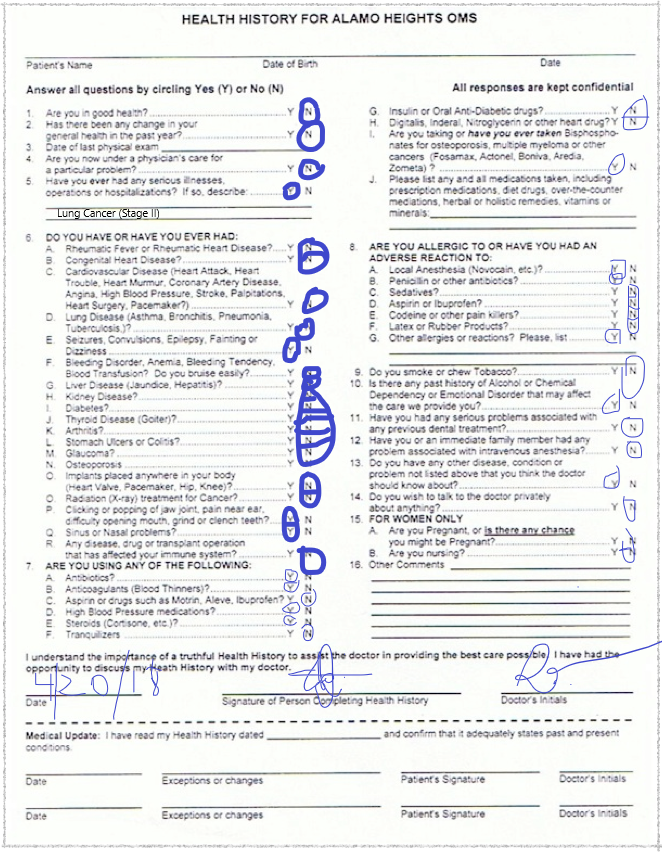 HEALTH HISTORY FOR ALAMO HEIGHTS OMS
Patient's Name Date of Birth Date
Answer all questions by circling Yes (Y) or No (N) All responses are kept confidential
1. Are you in good health? Y N
2. Has there been any change in your
general health in the past year? Y N
3. Date of last physical exam
4. Are you now under a physician's care for
a particular problem? Y N
5. Have you ever had any serious illnesses,
operations or hospitalizations? If so, describe: Y N
Lung Cancer (Stage II)
6. DO YOU HAVE OR HAVE YOU EVER HAD:
A. Rheumatic Fever or Rheumatic Heart Disease? Y N
B. Congenital Heart Disease? Y N
C. Cardiovascular Disease (Heart Attack, Heart
Trouble, Heart Murmur, Coronary Artery Disease,
Angina, High Blood Pressure, Stroke, Palpitations,
Heart Surgery, Pacemaker?) Y N
D. Lung Disease (Asthma, Bronchitis, Pneumonia,
Tuberculosis,)? Y N
E. Seizures, Convulsions, Epilepsy, Fainting or
Dizziness Y N
F. Bleeding Disorder, Anemia, Bleeding Tendency,
Blood Transfusion? Do you bruise easily? Y N
G. Liver Disease (Jaundice, Hepatitis)? Y N
H. Kidney Disease? Y N
I. Diabetes? Y N
J. Thyroid Disease (Goiter)? Y N
K. Arthritis? Y N
L. Stomach Ulcers or Colitis? Y N
M. Glaucoma? Y N
N. Osteoporosis Y N
O. Implants placed anywhere in your body
(Heart Valve, Pacemaker, Hip, Knee)? Y N
O. Radiation (X-ray) treatment for Cancer? Y N
P. Clicking or popping of jaw joint, pain near ear,
difficulty opening mouth, grind or clench teeth? Y N
Q. Sinus or Nasal problems? Y N
R. Any disease, drug or transplant operation
that has affected your immune system? Y N
7. ARE YOU USING ANY OF THE FOLLOWING:
A. Antibiotics? Y N
B. Anticoagulants (Blood Thinners)? Y N
C. Aspirin or drugs such as Motrin, Aleve, Ibuprofen? Y N
D. High Blood Pressure medications? Y N
E. Steroids (Cortisone, etc.)? Y N
F. Tranquilizers Y N
G. Insulin or Oral Anti-Diabetic drugs? Y N
H. Digitalis, Inderal, Nitroglycerin or other heart drug? Y N
I. Are you taking or have you ever taken Bisphospho-
nates for osteoporosis, multiple myeloma or other
cancers (Fosamax, Actonel, Boniva, Aredia,
Zometa) ? Y N
J. Please list any and all medications taken, including
prescription medications, diet drugs, over-the-counter
mediations, herbal or holistic remedies, vitamins or
minerals:
8. ARE YOU ALLERGIC TO OR HAVE YOU HAD AN
ADVERSE REACTION TO:
A. Local Anesthesia (Novocain, etc.)? Y N
B. Penicillin or other antibiotics? Y N
C. Sedatives? Y N
D. Aspirin or Ibuprofen? Y N
E. Codeine or other pain killers? Y N
F. Latex or Rubber Products? Y N
G. Other allergies or reactions? Please, list Y N
9. Do you smoke or chew Tobacco? Y N
10. Is there any past history of Alcohol or Chemical
Dependency or Emotional Disorder that may affect
the care we provide you? Y N
11. Have you had any serious problems associated with
any previous dental treatment? Y N
12. Have you or an immediate family member had any
problem associated with intravenous anesthesia? Y N
13. Do you have any other disease, condition or
problem not listed above that you think the doctor
should know about? Y N
14. Do you wish to talk to the doctor privately
about anything? Y N
15. FOR WOMEN ONLY
A. Are you Pregnant, or is there any chance
you might be Pregnant? Y N
B. Are you nursing? Y N
16. Other Comments
I understand the importance of a truthful Health History to assist the doctor in providing the best care possible. I have had the
opportunity to discuss my Heath History with my doctor.
4/20/18
Date Signature of Person Completing Health History Doctor's Initials
Medical Update: I have read my Health History dated and confirm that it adequately states past and present
conditions.
Date Exceptions or changes Patient's Signature Doctor's Initials
Date Exceptions or changes Patient's Signature Doctor's Initials